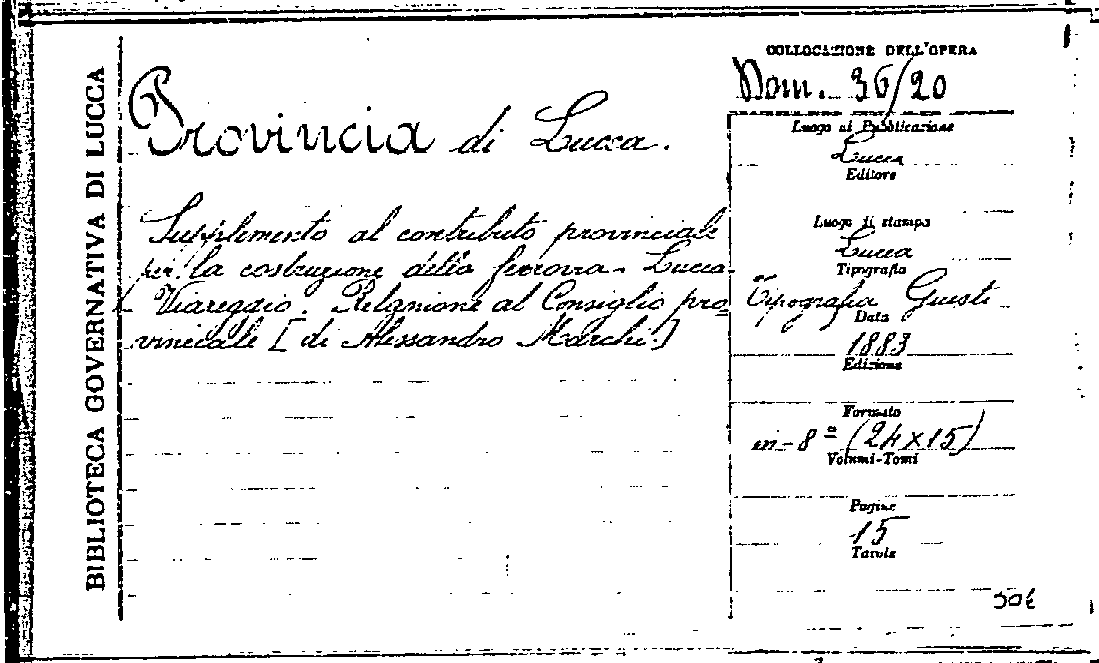 BIBLIOTECA GOVERNATIVA DI LUCCA
Provincia di Lucca.
Supplemento al contributo provinciale
per la costruzione della ferrovia - Lucca
Viareggio. Relazione al Consiglio pro=
vinciale [di Alessandro Marchi.]
COLLOCAZIONE DELL'OPERA
Dom. 36/20
Luogo di Pubblicazione
Lucca
Editore
Luogo di stampa
Lucca
Tipografia
Tipografia Giusti
Data
1883
Edizione
Formato
in-8º (24x15)
Volumi-Tomi
Pagine
15
Tavole